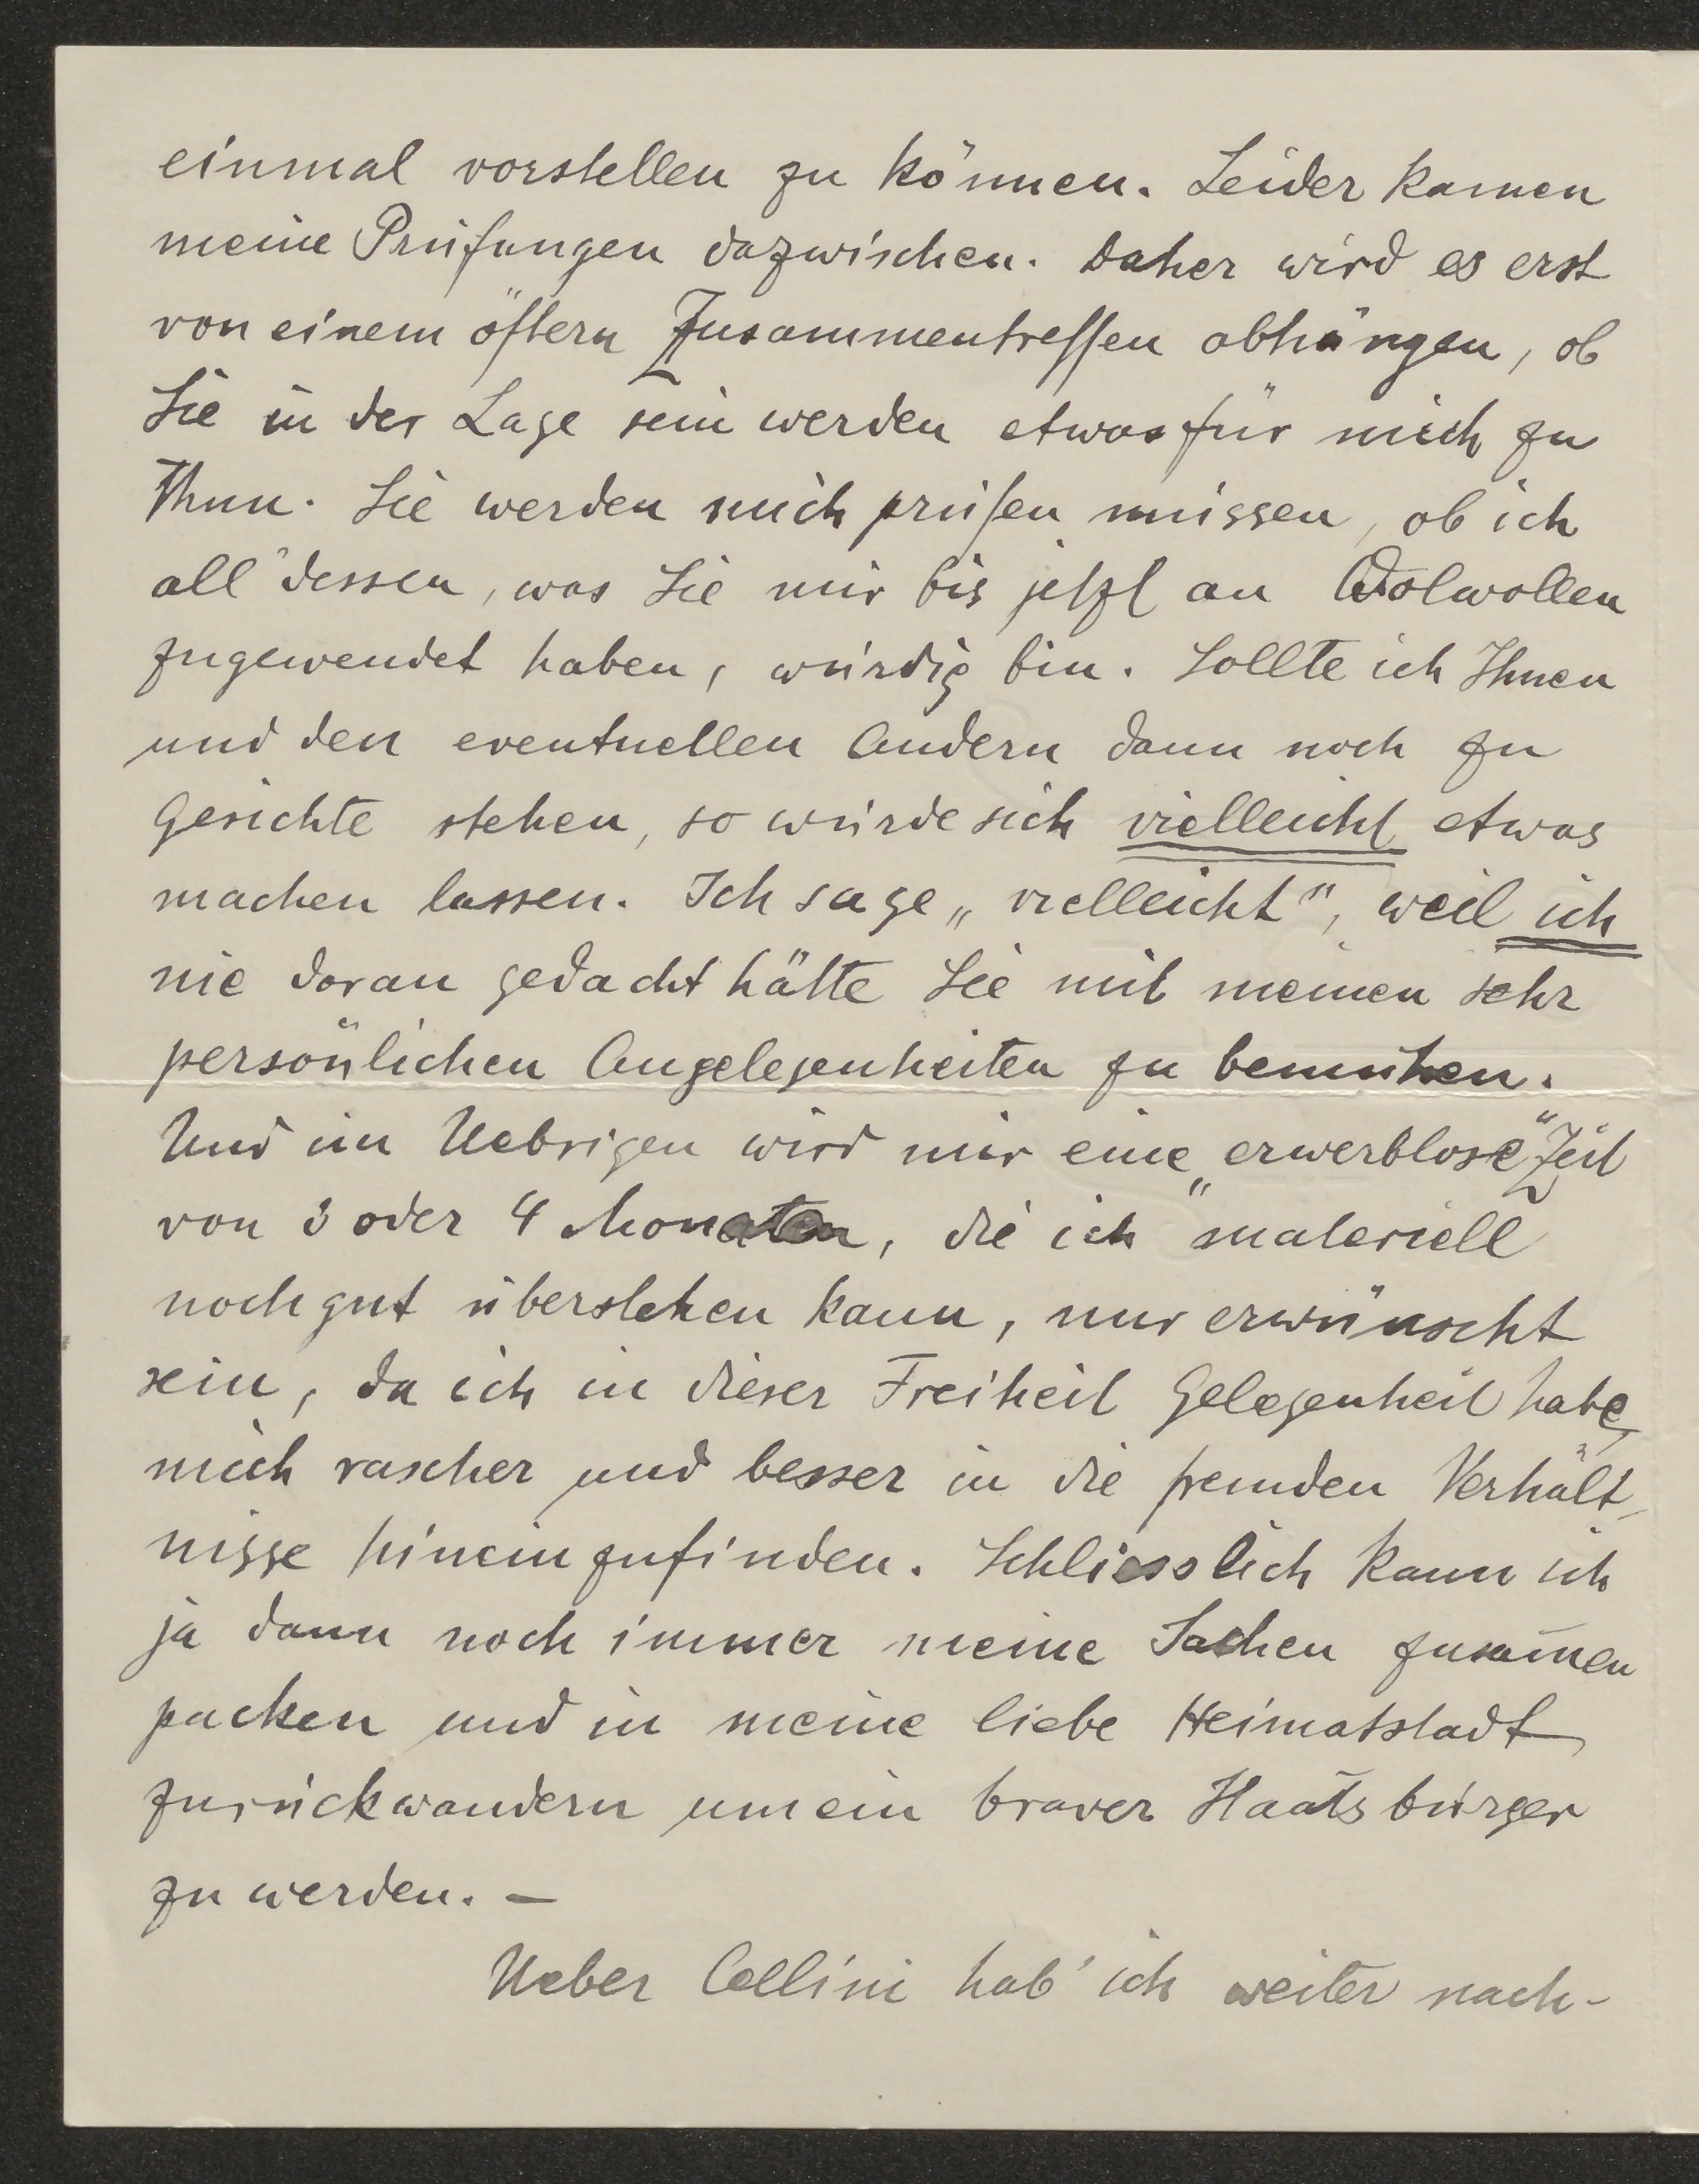 einmal vorstellen zu können. Leider kamen
meine Prüfungen dazwischen. Daher wird es erst
von einem öftern Zusammentreffen abhängen, ob
Sie in der Lage sein werden etwas für mich zu
thun. Sie werden mich prüfen müssen, ob ich
all' dessen, was Sie mir bis jetzt an Wolwollen
zugewendet haben, würdig bin. Sollte ich Ihnen
und den eventuellen Andern dann noch zu
Gesichte stehen, so würde sich vielleicht etwas
machen lassen. Ich sage „vielleicht“, weil ich
nie daran gedacht hätte Sie mit meinen sehr
persönlichen Angelegenheiten zu bemühen.
Und im Uebrigen wird mir eine „erwerblose“ Zeit
von 3 oder 4 Monaten, die ich materiell
noch gut überstehen kann, nur erwünscht
sein, da ich in dieser Freiheit Gelegenheit habe,
mich rascher und besser in die fremden Verhält-
nisse hineinzufinden. Schliesslich kann ich
ja dann noch immer meine Sachen zusam̄en
packen und in meine liebe Heimatstadt
zurückwandern um ein braver Staatsbürger
zu werden. –
Ueber Cellini hab' ich weiter nach-